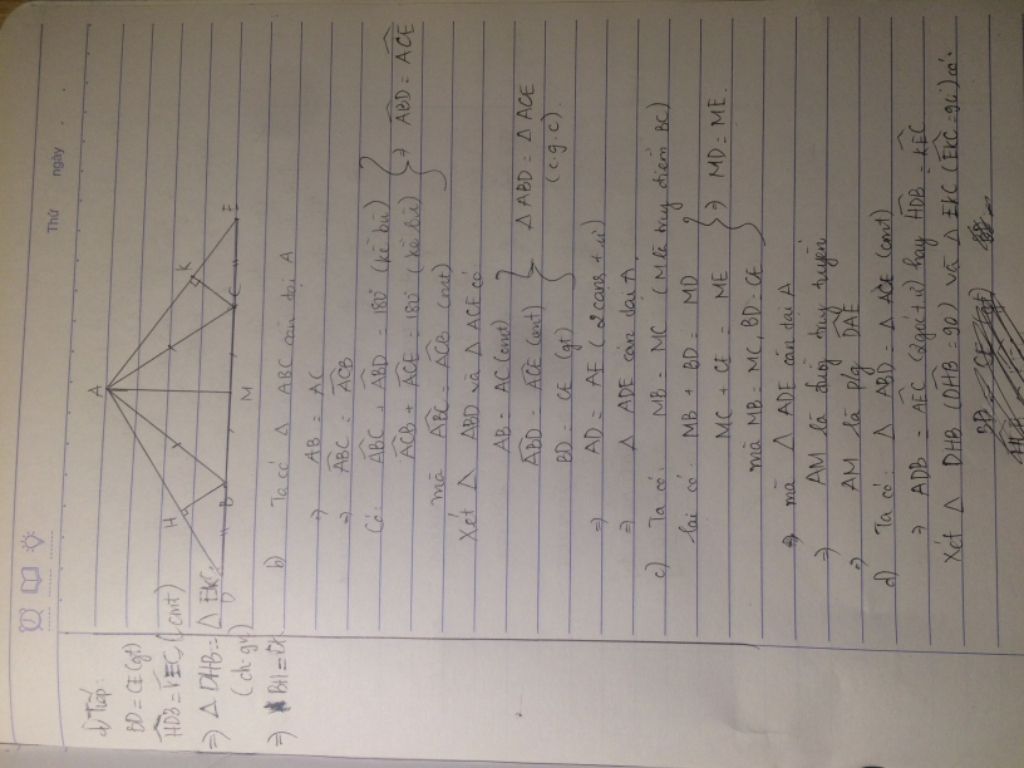 Thứ ngày
A
H
K
D
B
M
C
E
b) Ta có Δ ABC cân tại A
⇒ AB = AC
⇒ ABC = ACB
Có: ABC + ABD = 180° (kề bù)
ACB + ACE = 180° (kề bù) } ⇒ ABD = ACE
mà ABC = ACB (cmt)
Xét Δ ABD và Δ ACE có
AB = AC (cmt)
ABD = ACE (cmt) } Δ ABD = Δ ACE
BD = CE (gt) (c.g.c).
⇒ AD = AE (2 cạnh t.ư)
⇒ Δ ADE cân tại A.
c) Ta có: MB = MC (M là trung điểm BC)
lại có MB + BD = MD
MC + CE = ME } ⇒ MD = ME.
mà MB = MC, BD = CE
⇒ mà Δ ADE cân tại A
⇒ AM là đường trung tuyến
⇒ AM là p/g DAE
d) Ta có: Δ ABD = Δ ACE (cmt)
⇒ ADB = AEC (2 góc t.ư) hay HDB = KEC
Xét Δ DHB (DHB = 90°) và Δ EKC (EKC = 90°) có
BD = CE (gt)
d) Tiếp:
BD = CE (gt)
HDB = KEC (cmt)
⇒ Δ DHB = Δ EKC
(ch.gn)
⇒ BH = CK